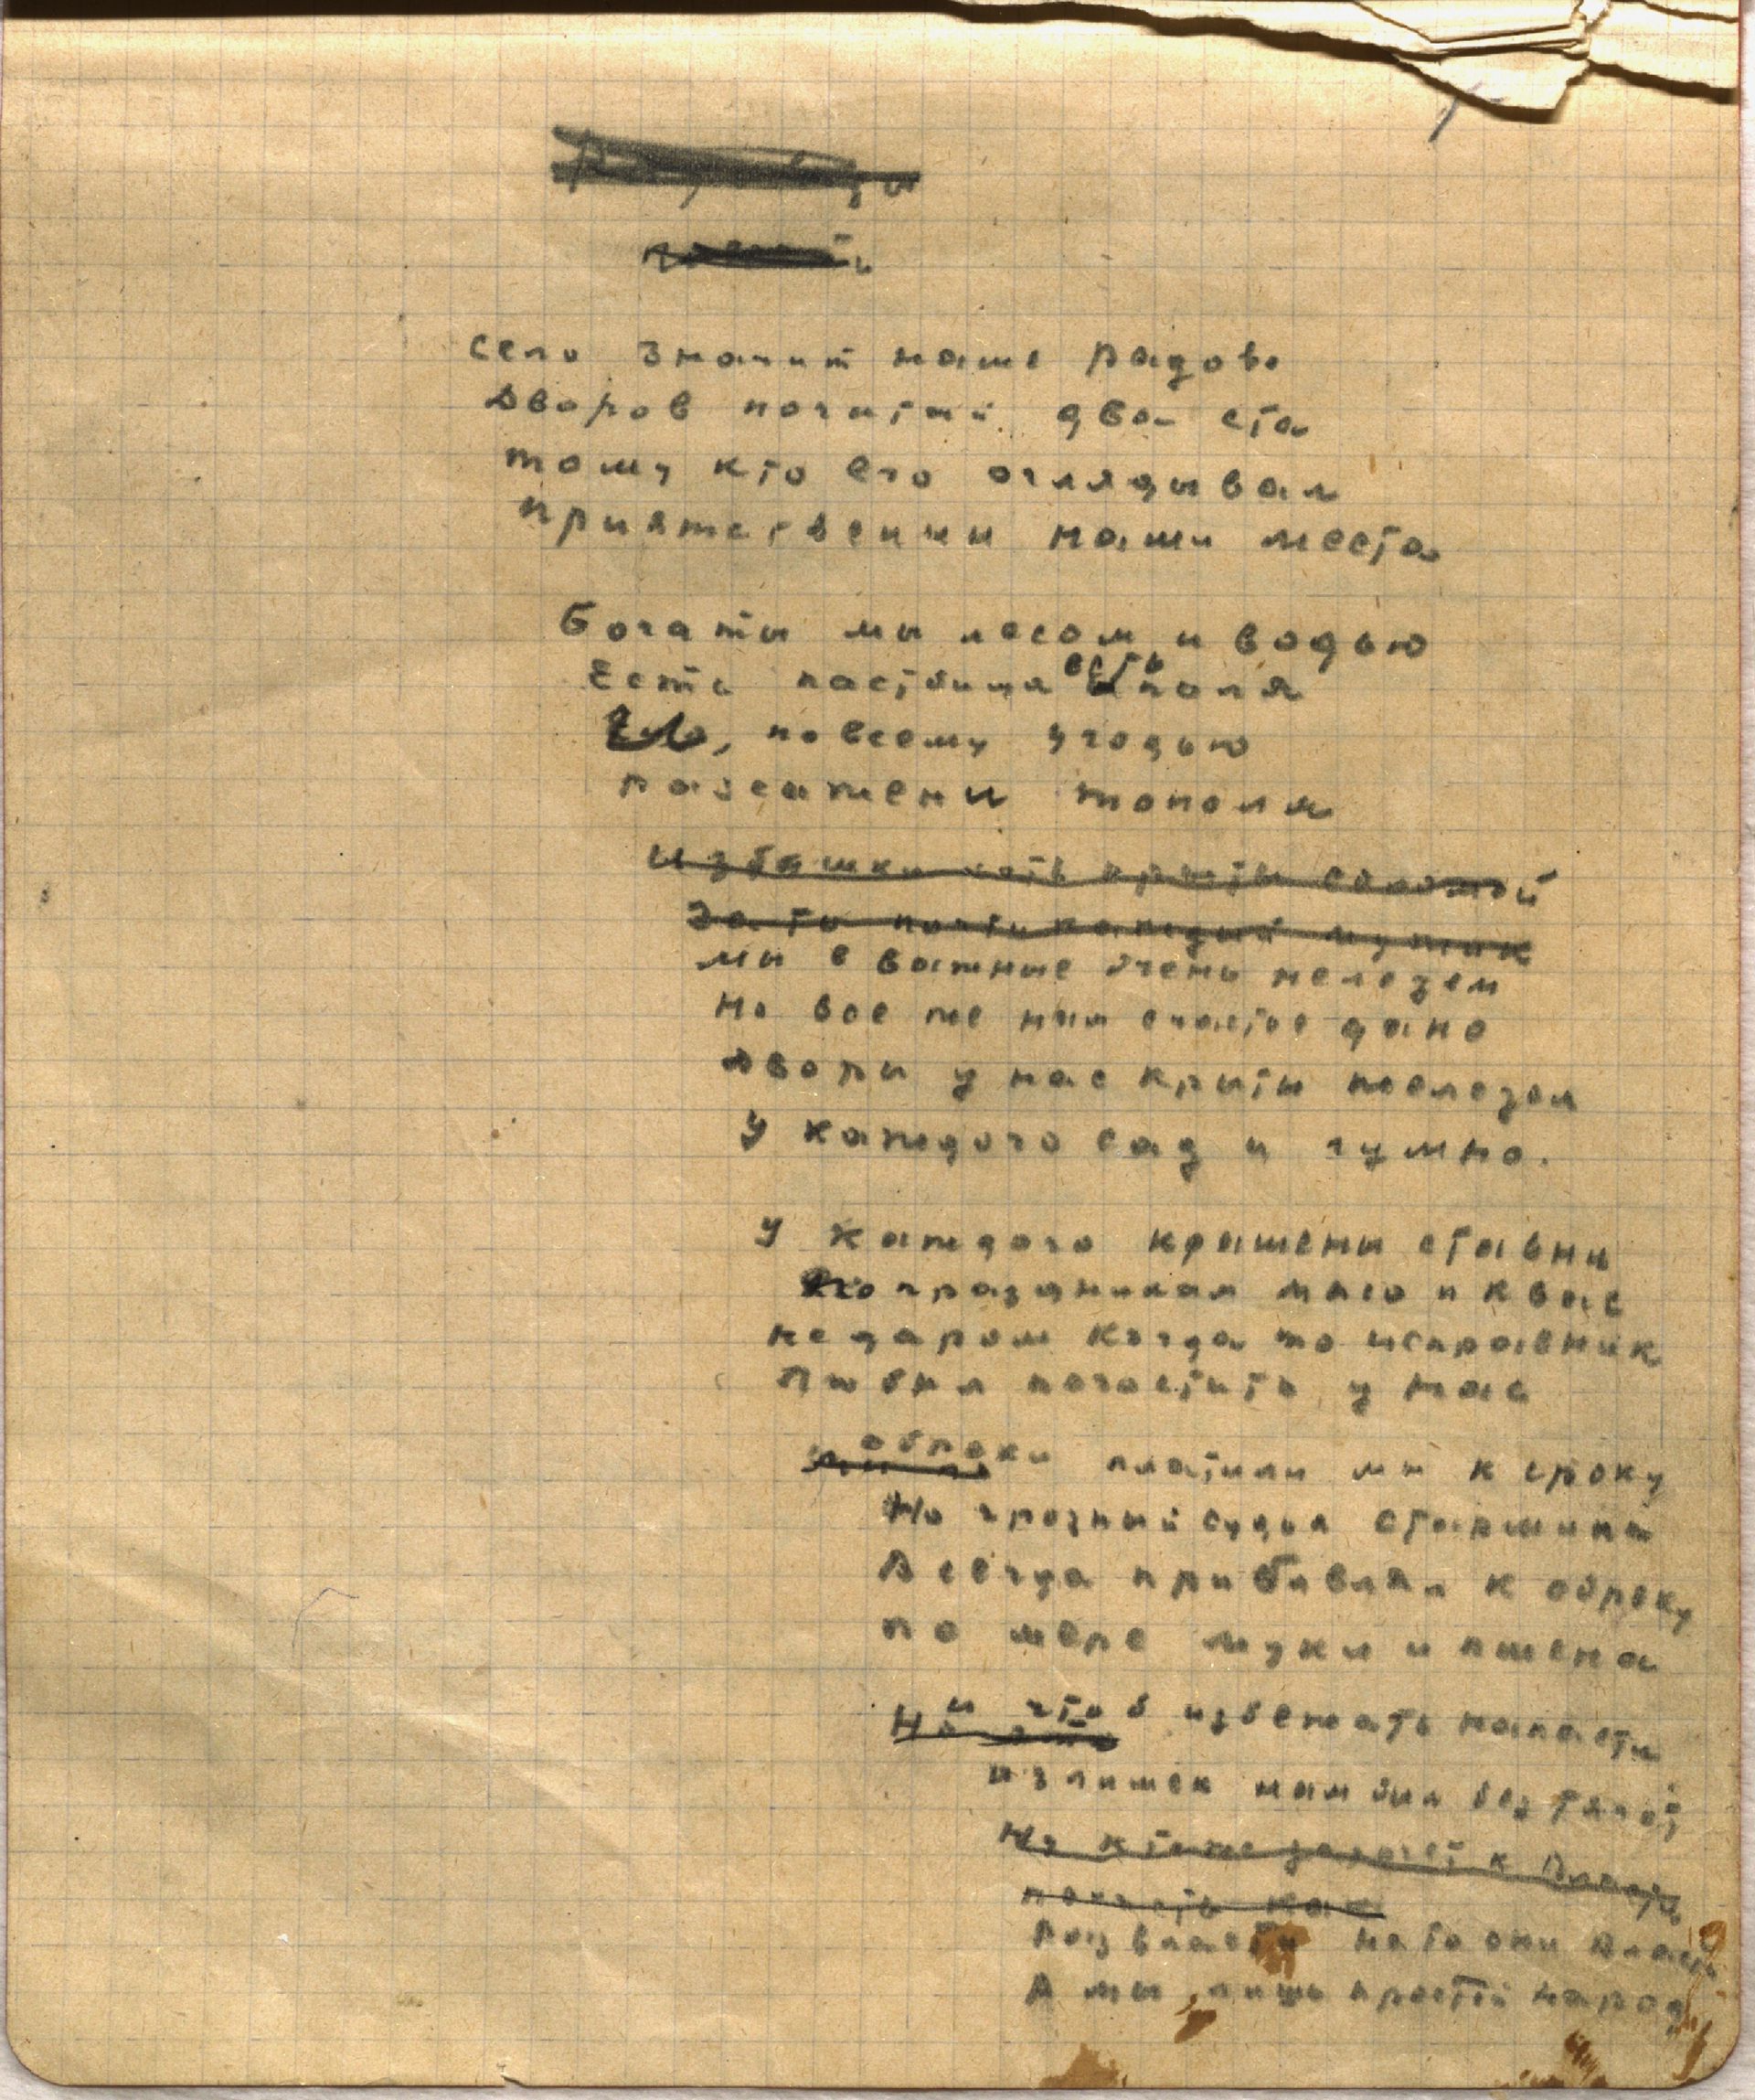 село Значит наше Радово
Дворов почитай два ста
тому кто его оглядывал
приятственны наши места
Богаты мы лесом и водью
Есть пастбища есть поля
, по всему угодью
рассажены тополя
Избушки хоть крыты соломой
Зато почти каждый мужик
мы в важные очень не лезем
Но все же нам счастье дано
Дворы у нас крыты железом
У каждого сад и гумно.
У каждого крашены ставни
По праздникам мясо и квас
недаром когда то исправник
Любил погостить у нас
оброки платили мы к сроку
Но грозный судья старшина
Всегда прибавлял к оброку
по мере муки и пшена
и чтоб избежать напасти
излишек нам был без тягот
Но кто же захочет к Власти
попасть как
Раз власти на то они власти
А мы лишь простой народ